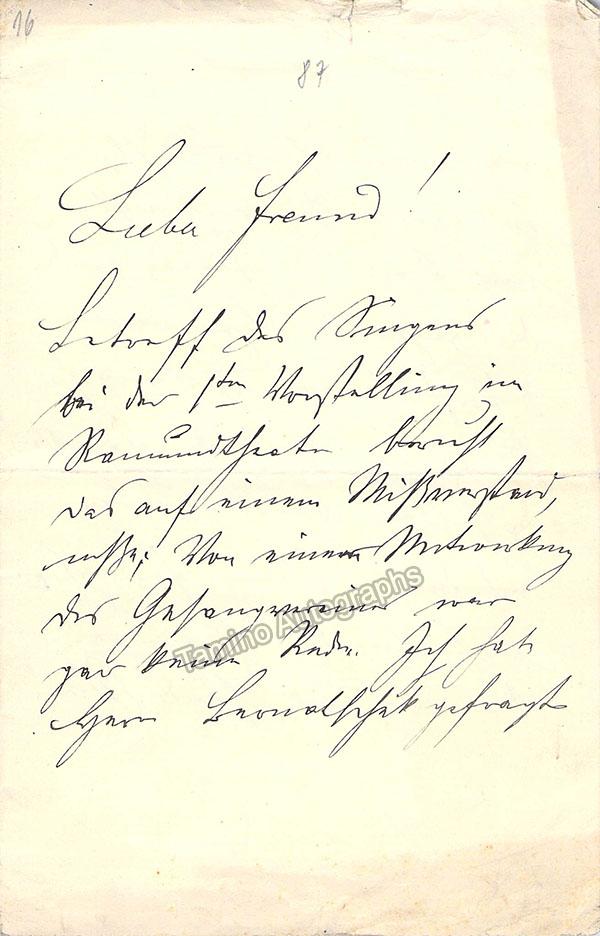 16
87
Lieber Freund!
Betreff des Singens
bei der 1ten Vorstellung im
Raimundtheater beruht
das auf einem Mißverständ,
nisse; Von einer Mitwirkung
des Gesangvereines war
gar keine Rede. Ich hab
Herrn Bernatschek gefragt
Tamino Autographs